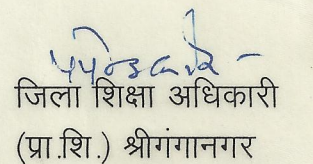 जिला शिक्षा अधिकारी
(प्रा.शि.) श्रीगंगानगर